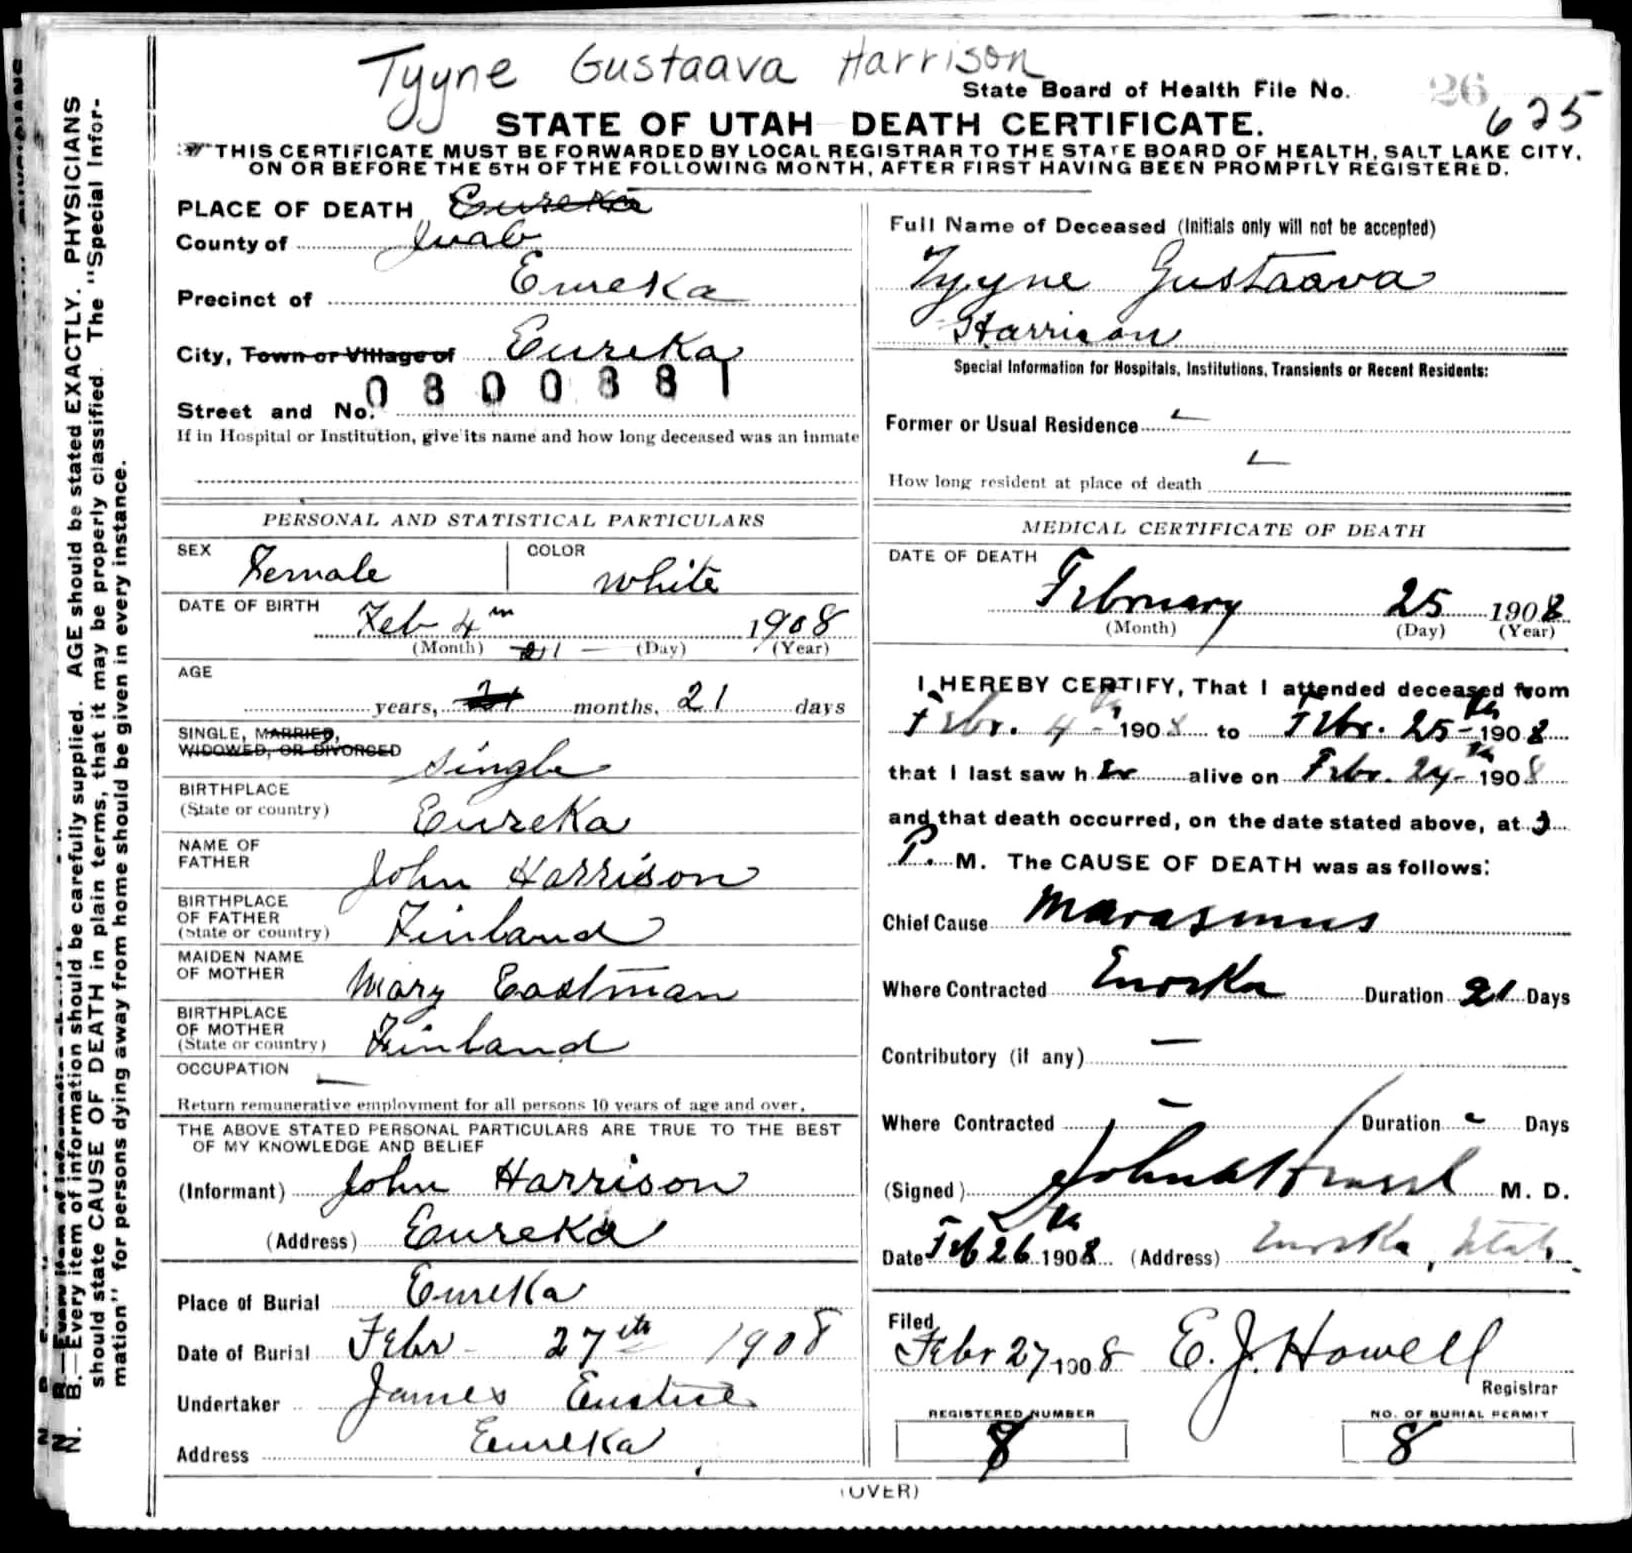 Tyyne Gustaava Harrison
State Board of Health File No.
26
625
STATE OF UTAH DEATH CERTIFICATE.
THIS CERTIFICATE MUST BE FORWARDED BY LOCAL REGISTRAR TO THE STATE BOARD OF HEALTH, SALT LAKE CITY,
ON OR BEFORE THE 5TH OF THE FOLLOWING MONTH, AFTER FIRST HAVING BEEN PROMPTLY REGISTERED.
N. B.—Every item of information should be carefully supplied. AGE should be stated EXACTLY. PHYSICIANS
should state CAUSE OF DEATH in plain terms, that it may be properly classified. The "Special Infor-
mation" for persons dying away from home should be given in every instance.
PLACE OF DEATH Eureka
County of Juab
Precinct of Eureka
City, Town or Village of Eureka
0800881
Street and No.
If in Hospital or Institution, give its name and how long deceased was an inmate
PERSONAL AND STATISTICAL PARTICULARS
SEX Female COLOR White
DATE OF BIRTH Feb 4 1908
(Month) (Day) (Year)
AGE
years, 21 months, 21 days
SINGLE, MARRIED,
WIDOWED, OR DIVORCED Single
BIRTHPLACE
(State or country) Eureka
NAME OF
FATHER John Harrison
BIRTHPLACE
OF FATHER
(State or country) Finland
MAIDEN NAME
OF MOTHER Mary Eastman
BIRTHPLACE
OF MOTHER
(State or country) Finland
OCCUPATION —
Return remunerative employment for all persons 10 years of age and over.
THE ABOVE STATED PERSONAL PARTICULARS ARE TRUE TO THE BEST
OF MY KNOWLEDGE AND BELIEF
(Informant) John Harrison
(Address) Eureka
Place of Burial Eureka
Date of Burial Febr 27th 1908
Undertaker James Eustice
Address Eureka
Full Name of Deceased (Initials only will not be accepted)
Tyyne Gustaava
Harrison
Special Information for Hospitals, Institutions, Transients or Recent Residents:
Former or Usual Residence
How long resident at place of death
MEDICAL CERTIFICATE OF DEATH
DATE OF DEATH
February 25 1908
(Month) (Day) (Year)
I HEREBY CERTIFY, That I attended deceased from
Febr. 4th 1908 to Febr. 25th 1908
that I last saw her alive on Febr. 24th 1908
and that death occurred, on the date stated above, at
P. M. The CAUSE OF DEATH was as follows:
Chief Cause Marasmus
Where Contracted Eureka Duration 21 Days
Contributory (if any) —
Where Contracted - Duration - Days
(Signed) M. D.
Date Feb 26th 1908 (Address) Eureka, Utah
Filed
Febr 27 1908 E. J. Howell
Registrar
REGISTERED NUMBER
8
NO. OF BURIAL PERMIT
8
(OVER)